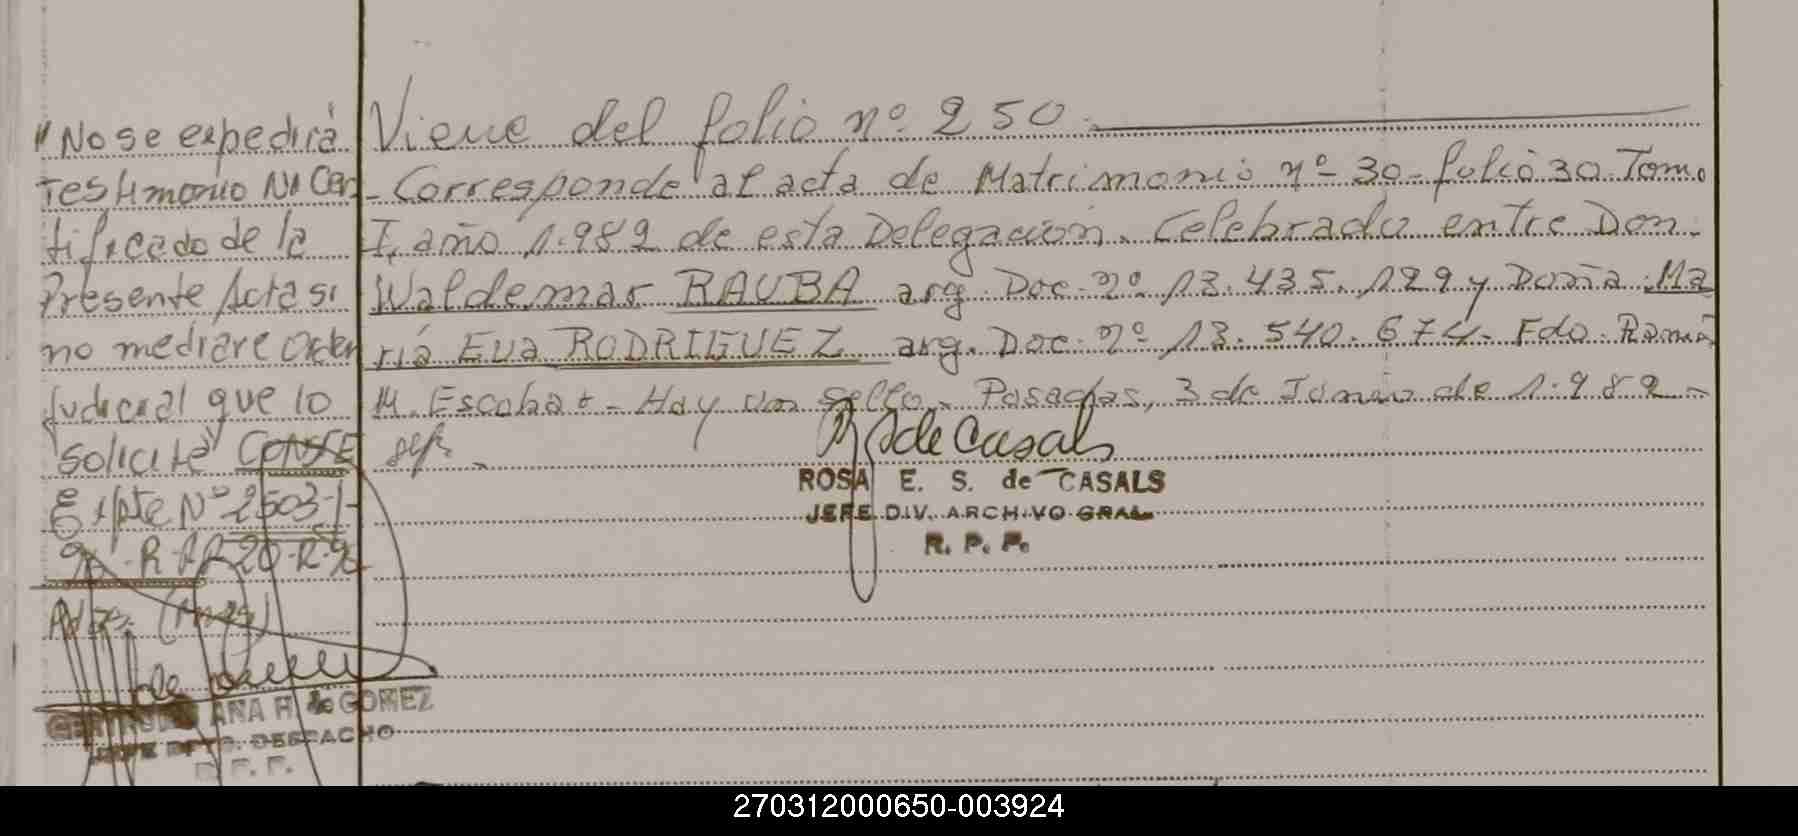 "No se expedirá
Testimonio Ni Cer
tificado de la
Presente Acta si
no mediare orden
judicial que lo
solicite" CONSTE
Expte Nº 2503-1-
Viene del folio nº 250.
- Corresponde al acta de Matrimonio nº 30- folio 30. Tomo
I, año 1.982 de esta Delegación. Celebrado entre Don
Waldemar RAUBA arg. Doc. nº 13.435.129 y Doña Ma
ría Eva RODRIGUEZ arg. Doc. nº 13.540.674. Fdo. Ramón
M. Escobar - Hay un sello. Posadas, 3 de Junio de 1.982 -
R S de Casals
ROSA E. S. de CASALS
JEFE DIV. ARCHIVO GRAL
R. P. P.
ANA H. de GOMEZ
JEFE DPTO. DESPACHO
R. P. P.
270312000650-003924